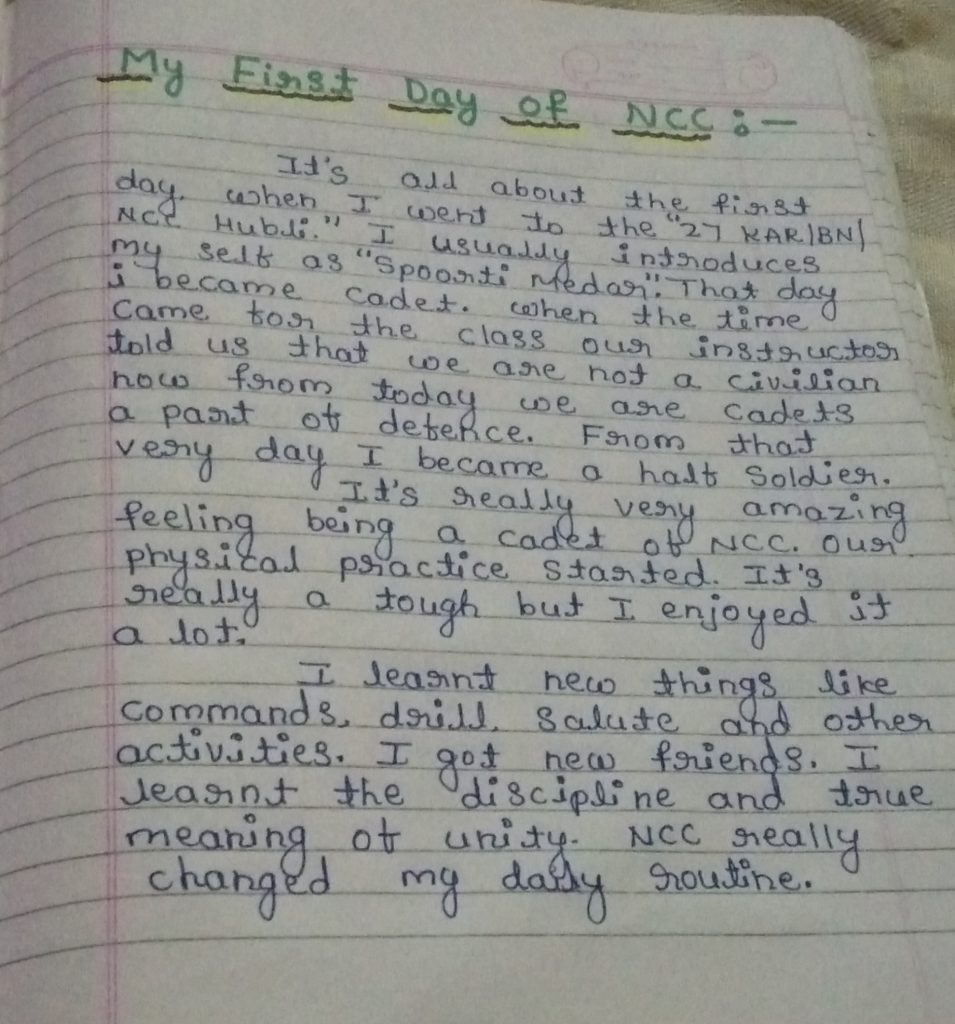 My First Day of NCC :-
It's all about the first
day. when I went to the "27 KAR/BN/
NCC Hubli." I usually introduces
my self as "Spoorti Medar". That day
i became cadet. when the time
came for the class our instructor
told us that we are not a civilian
now from today we are cadets
a part of defence. From that
very day I became a half Soldier.
It's really very amazing
feeling being a cadet of NCC. our
physical practice started. It's
really a tough but I enjoyed it
a lot.
I learnt new things like
commands, drill, salute and other
activities. I got new friends. I
learnt the discipline and true
meaning of unity. NCC really
changed my daily routine.